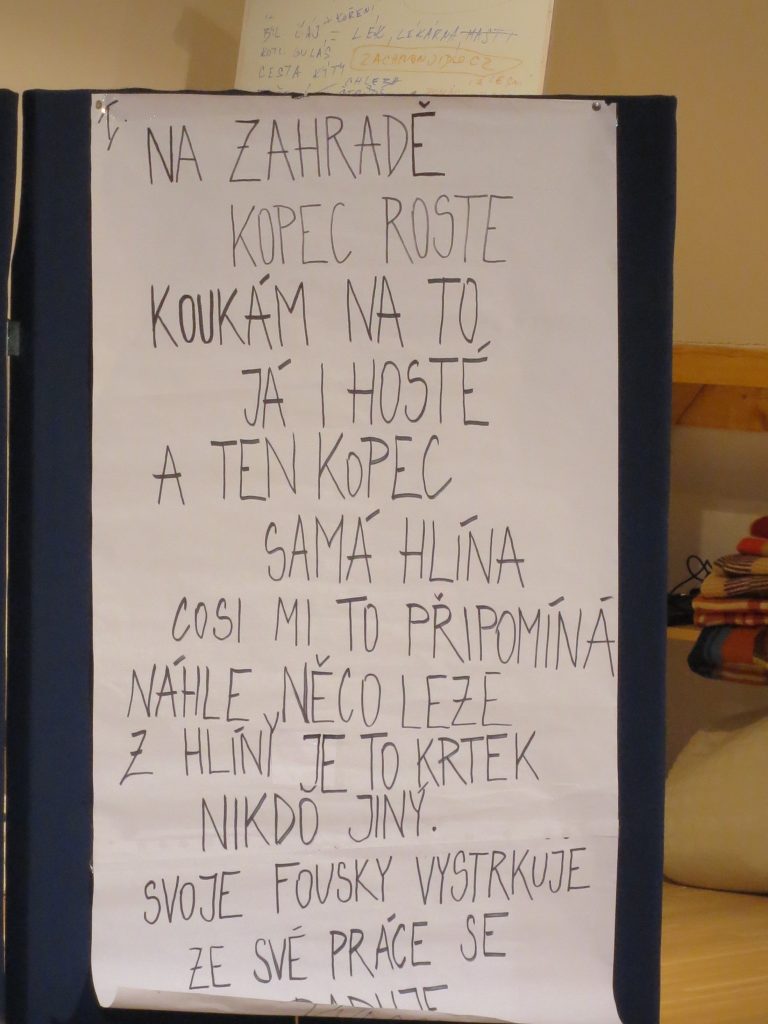 KOŘENÍ
BYL ČAJ = LÉK, LÉKÁRNA MASTI
KOTL. GULÁŠ
ZACHRANJIDLO.CZ
CESTA KÝTY
CHLEBA
I.
NA ZAHRADĚ
KOPEC ROSTE
KOUKÁM NA TO
JÁ I HOSTÉ
A TEN KOPEC
SAMÁ HLÍNA
COSI MI TO PŘIPOMÍNÁ
NÁHLE NĚCO LEZE
Z HLÍNÝ JE TO KRTEK
NIKDO JINÝ.
SVOJE FOUSKY VYSTRKUJE
ZE SVÉ PRÁCE SE
RADUJE